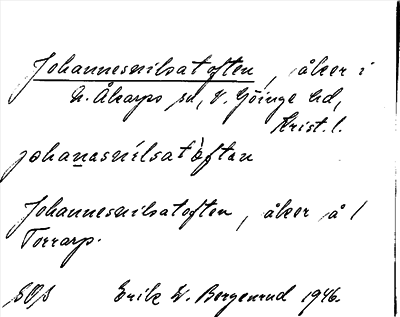 Johannesnilsatoften, åker i
N. Åkarps sn, V. Göinge hd,
Krist. l.
johanasnílsat òftan
Johannesnilsatoften, åker å 1
Torrarp.
Erik W. Bergenrud 1946.